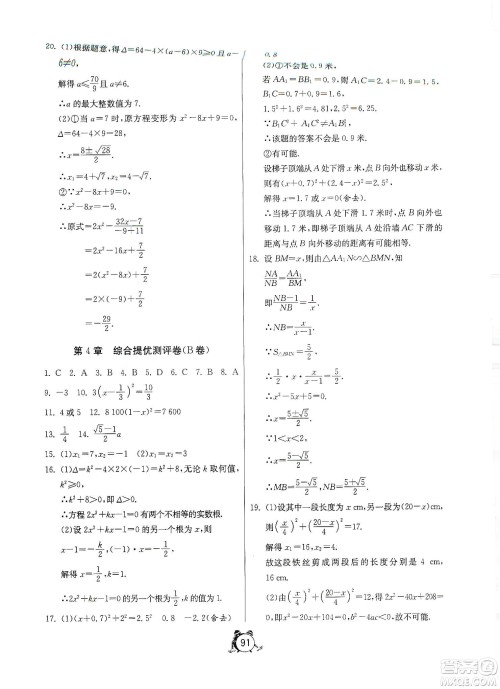 20. (1)根据题意，得Δ=64-4×(a-6)×9≥0且a-
6≠0.
解得 a≤70/9 且 a≠6.
∴a 的最大整数值为 7.
(2)①当 a=7 时，原方程变形为 x²-8x+9=0，
Δ=64-4×9=28，
∴x=(8±√28)/2.
∴x₁=4+√7，x₂=4-√7.
②∵x²-8x+9=0，
∴x²-8x=-9.
∴原式=2x²-(32x-7)/(-9+11)
=2x²-16x+7/2
=2(x²-8x)+7/2
=2×(-9)+7/2
=-29/2.
第 4 章 综合提优测评卷(B 卷)
9. -3 10. 3(x-1/3)²
11. 4 或 5 12. 8 100(1-x)²=7 600
13. 1/4 14. (√5-1)/2 a
15. (1)x₁=7，x₂=2 (2)x₁=x₂=3
16. (1)∵Δ=k²-4×2×(-1)=k²+8，无论 k 取何值，
k²≥0，
∴k²+8>0，即Δ>0.
∴方程 2x²+kx-1=0 有两个不相等的实数根.
(2)设 2x²+kx-1=0 的另一个根为 x，则
x-1=-k/2，(-1)·x=-1/2，
解得 x=1/2，k=1.
∴2x²+kx-1=0 的另一个根为 1/2，k 的值为 1.
17. (1)(x+0.7)²+2²=2.5² 0.8 -2.2(舍去)
0.8
(2)①不会是 0.9 米.
若 AA₁=BB₁=0.9，则 A₁C=2.4-0.9=1.5，
B₁C=0.7+0.9=1.6，
1.5²+1.6²=4.81，2.5²=6.25.
∵B₁C²+A₁C²≠A₁B₁²，
∴该题的答案不会是 0.9 米.
②有可能.
设梯子顶端从 A 处下滑 x 米，点 B 向外也移动 x
米，则有(x+0.7)²+(2.4-x)²=2.5²，
解得 x=1.7 或 x=0(舍去).
∴当梯子顶端从 A 处下滑 1.7 米时，点 B 向外也
移动 1.7 米，即梯子顶端从 A 处沿墙 AC 下滑的
距离与点 B 向外移动的距离有可能相等.
18. 设 BM=x，由△AA₁N∽△BMN，知
NA/NB=AA₁/BM，
即 (NB-1)/NB=1/x，
∴NB=x/(x-1).
<1<x<2，
19. (1)设其中一段长度为 x cm，另一段为(20-x) cm，
则(x/4)²+((20-x)/4)²=17.
解得 x₁=4，x₂=16.
故这段铁丝剪成两段后的长度分别是 4 cm，
16 cm.
(2)由(x/4)²+((20-x)/4)²=12，得 2x²-40x+
208=0，b²-4ac<0，故不可能.
91